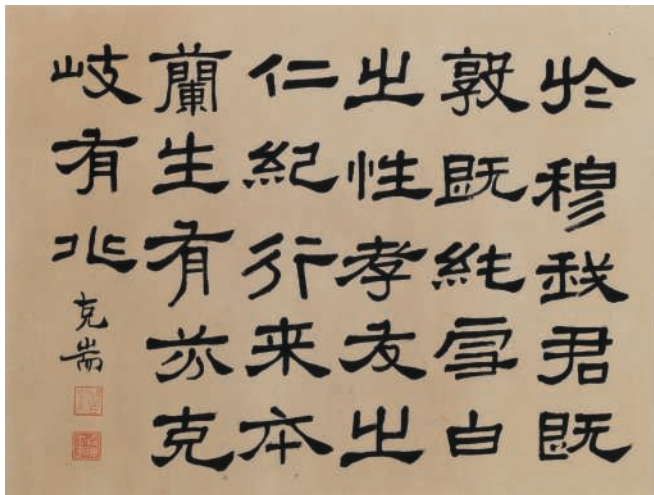 於穆我君既
敦既純雪白
之性孝友之
仁紀行来本
蘭生有芬克
岐有兆
克耑